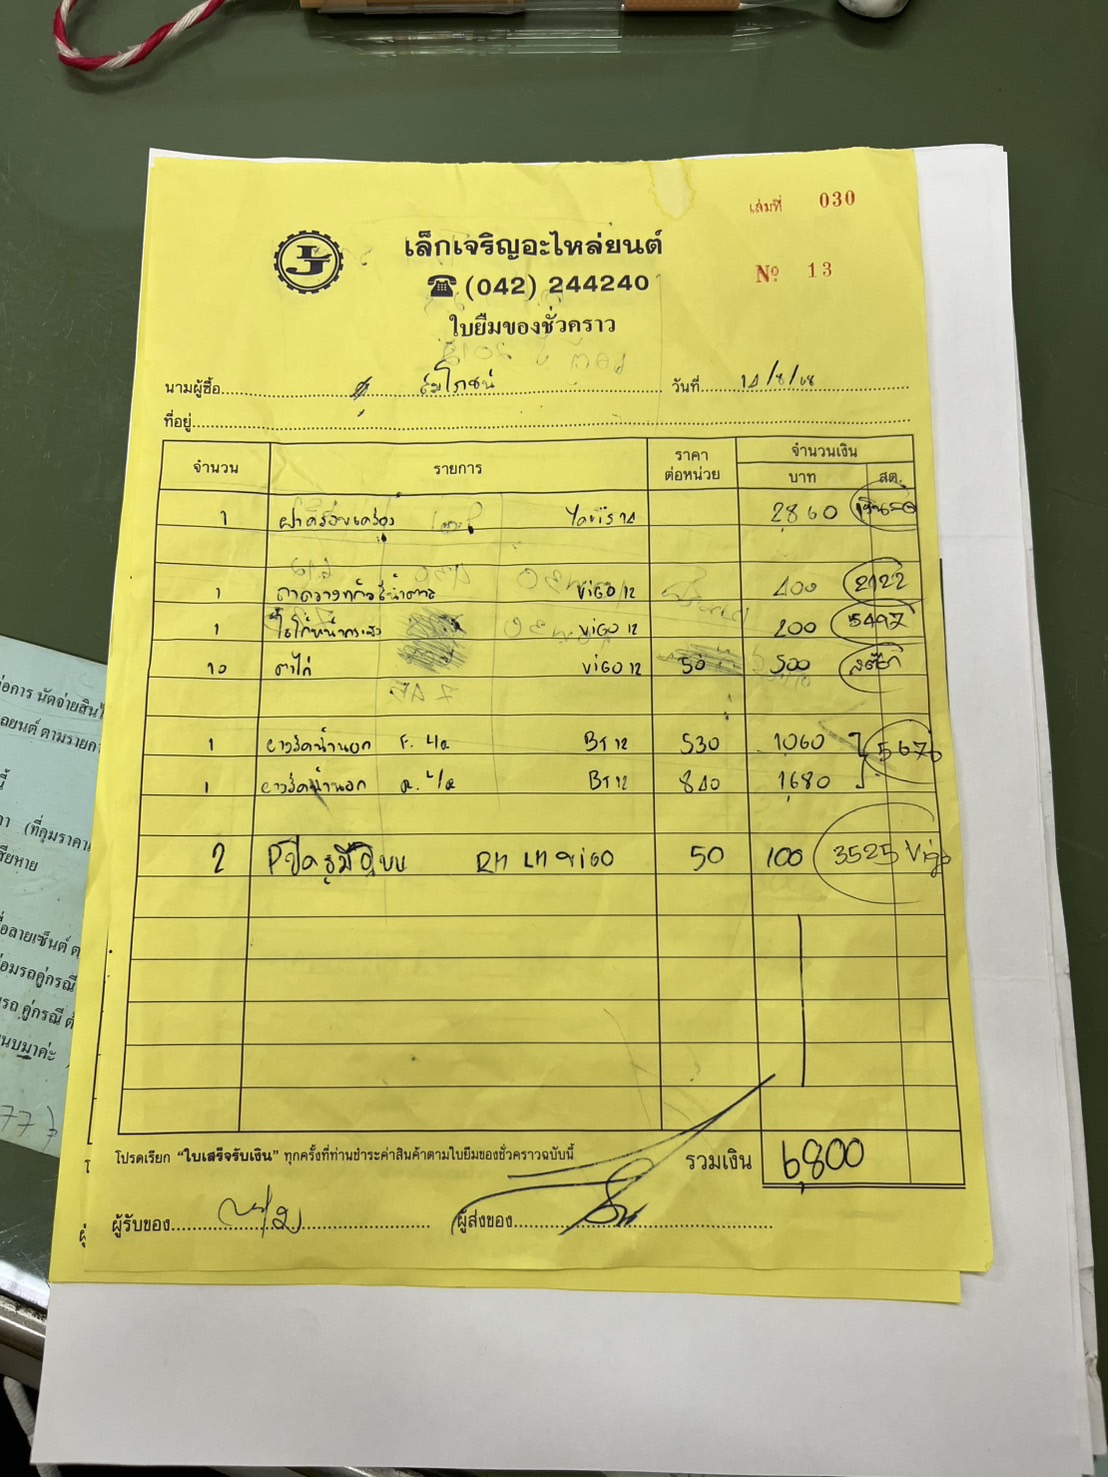 เล่มที่ 030
เล็กเจริญอะไหล่ยนต์
(042) 244240
Nº 13
ใบยืมของชั่วคราว
นามผู้ซื้อ สมโภชน์ วันที่ 14/8/68
ที่อยู่
จำนวน รายการ ราคาต่อหน่วย จำนวนเงิน บาท สต.
1 ฝาครอบเครื่อง Yaris 14 2860
1 VIGO 12 400 2122
1 VIGO 12 200 5497
10 ตาไก่ VIGO 12 50 500 สต๊อก
1 ยางรีดน้ำนอก F. L/R BT 12 530 1,060 5676
1 ยางรีดน้ำนอก R. L/R BT 12 840 1,680
2 RH LH VIGO 50 100 3525 Vigo
โปรดเรียก "ใบเสร็จรับเงิน" ทุกครั้งที่ท่านชำระค่าสินค้าตามใบยืมของชั่วคราวฉบับนี้
รวมเงิน 6,800
ผู้รับของ ผู้ส่งของ